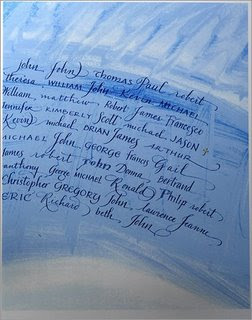 john john thomas Paul robert
theresa WILLIAM John Kevin MICHAEL
William matthew Robert James Francesco
Jennifer KIMBERLY Scott michael JASON
Kevin michael BRIAN James ARTHUR
MICHAEL John GEORGE francis Gail
James robert John Donna bertrand
anthony George MICHAEL Ronald Philip robert
Christopher GREGORY John Laurence Jeanne
ERIC Richard beth John